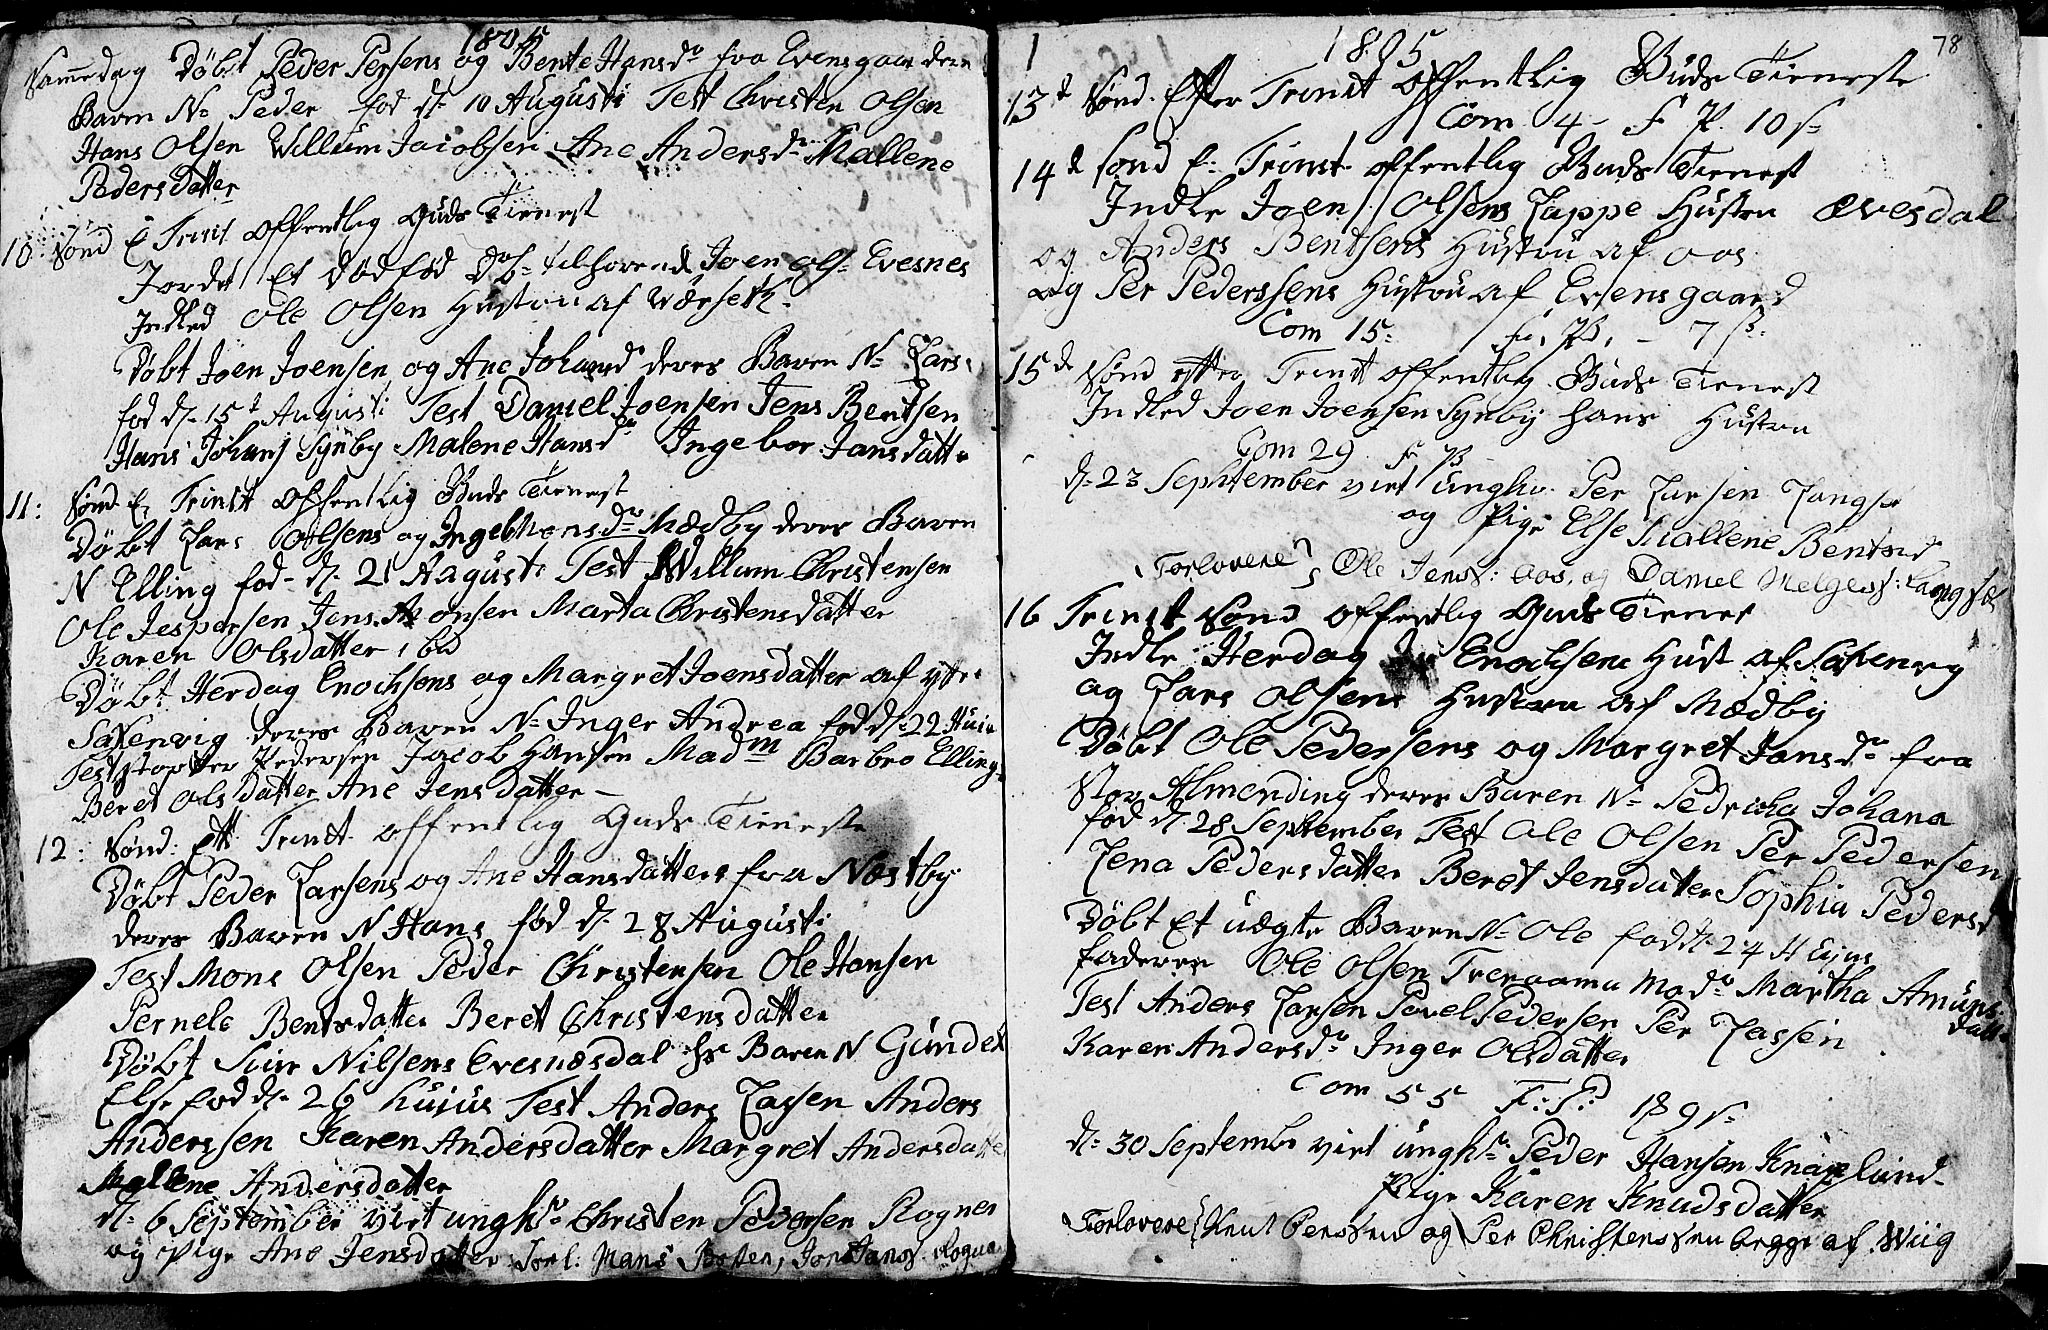 1805
Samedag Døbt Peder Persens og Bente Hansdr fra Evensgaarden
Baren N. Peder fød d. 10 Augusti Test Christen Olsen
Hans Olsen Willum Jacobsen Ane Andersdr Mallene
Pedersdatter
10. Sønd E Trint offentlig Guds Tienest
Jordet Et Dødfød tilhørende Joen Ols. Evesnes
Indled Ole Olsen Hustru af
Døbt Joen Joensen og Ane Johansd deres Baren N. Lars
fod d. 15t Augusti Test Daniel Joensen Jens Bentsen
Hans Johans Synby Malene Hansdr Ingebor Jansdatter
11: Sønd E. Trinit offentlig Guds Tienest
Døbt Lars Olsens og Ingeb Hansdr Mædby deres Baren
N Elling fød d. 21 Augusti Test Willum Christensen
Ole Jespersen Jens Aronsen Marta Christensdatter
Karen Olsdatter ibd
Døbt Herdag Enochsens og Margret Joensdatter af ytre
Saxenvig deres Baren N. Inger Andrea fød d. 22 Huius
Test Pedersen Jacob Hansen Madm Barbro Elling
Beret Olsdatter Ane Jensdatter
12: Sønd: Eft Trinit offentlig Guds Tieneste
Døbt Peder Larsens og Ane Hansdatters fra Næstby
deres Baren N Hans fød d. 28 Augusti
Test Mons Olsen Peder Christensen Ole Hansen
Pernele Bentsdatter Beret Christensdatter
Døbt Siur Nilsens Evesnæsdal hs Baren N Gundel
Else fød d. 26 huius Test Anders Lassen Anders
Anderssen Karen Andersdatter Margret Andersdatter
Mallene Andersdatter
d. 6 September virt unghr Christen Pedersen Rognes
og pige Ane Jensdatter Forl. Hans Jons Jans. Rogna
1 1805 78
13d Sønd. Efter Trinit offentlig Guds Tieneste
Com 4 - F P. 10 s
14d Sønd E. Trinit offentlig Guds Tienest
Indle Joen Olsens Lappe Hustru Evesdal
og Anders Bentsens Hustru af Aos
og Per Pederssens Hustru af Evensgaard
Com 15: F. P. - 7 s:
15d Sønd efter Trinit offentlig Guds Tienest
Indled Joen Joensen Synby hans Hustru
Com 29 F. P
d. 23 September virt Unghr. Per Larsen Langsæ
og Pige Else Mallene Bentsd
Forlovere Ole Jenss: Aos, og Daniel Helgess: Langsæ
16 Trinit Sønd offentlig Guds Tienes
Indle: Herdag Enochsens Hust af Saxenvig
og Lars Olsens Hustru af Mædby
Døbt Ole Pedersens og Margret Jansdr fra
Stor Almending deres Baren N. Pedricha Johana
fød d. 28 September Test Ole Olsen Per Pedersen
Lena Pedersdatter Beret Jensdatter Sophia Pedersd
Døbt Et uægte Baren N. Ole fød d. 24 Huius
faderen Ole Olsen Moder Martha Amunsdatt.
Test Anders Larsen Povel Pedersen Per Lassen
Karen Andersdr Inger Olsdatter
Com 55 F: P: 189 s
d. 30 September virt unghr Peder Hansen Knaplund
Pige Karen Knudsdatter
Forlovere Knut Perssen og Per Christenssen begge af Wiig